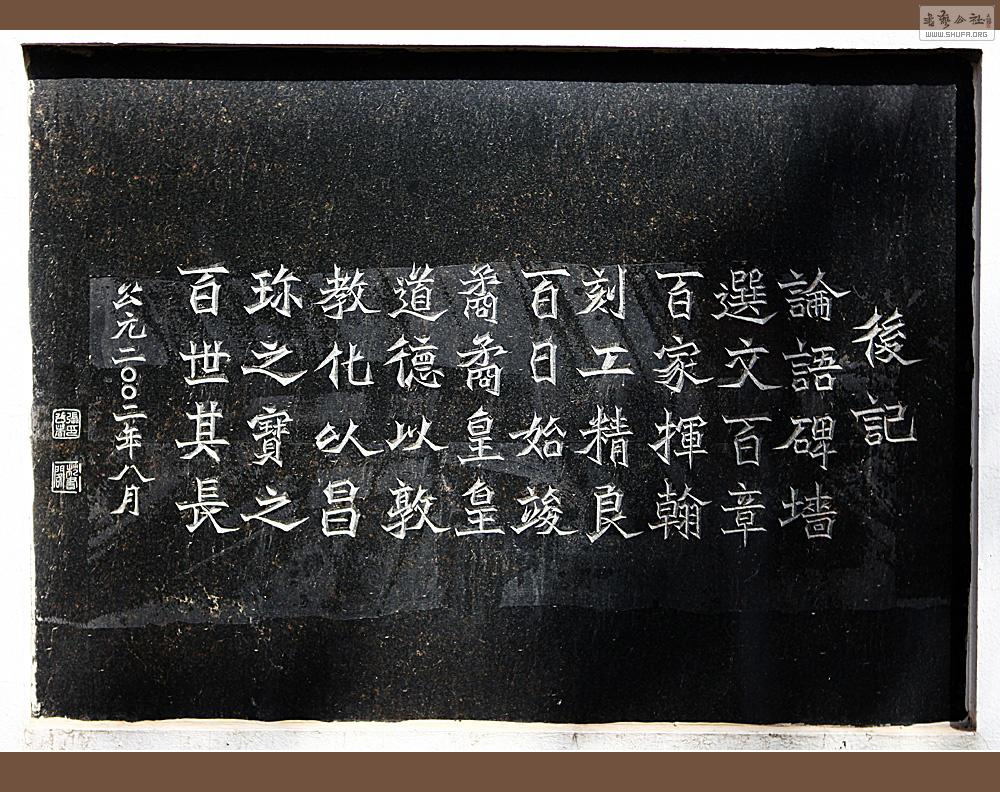 後記
論語碑墻
選文百章
百家揮翰
刻工精良
百日始竣
矞矞皇皇
道德以敦
教化以昌
珍之寶之
百世其長
公元二〇〇二年八月
書藝公社
WWW.SHUFA.ORG